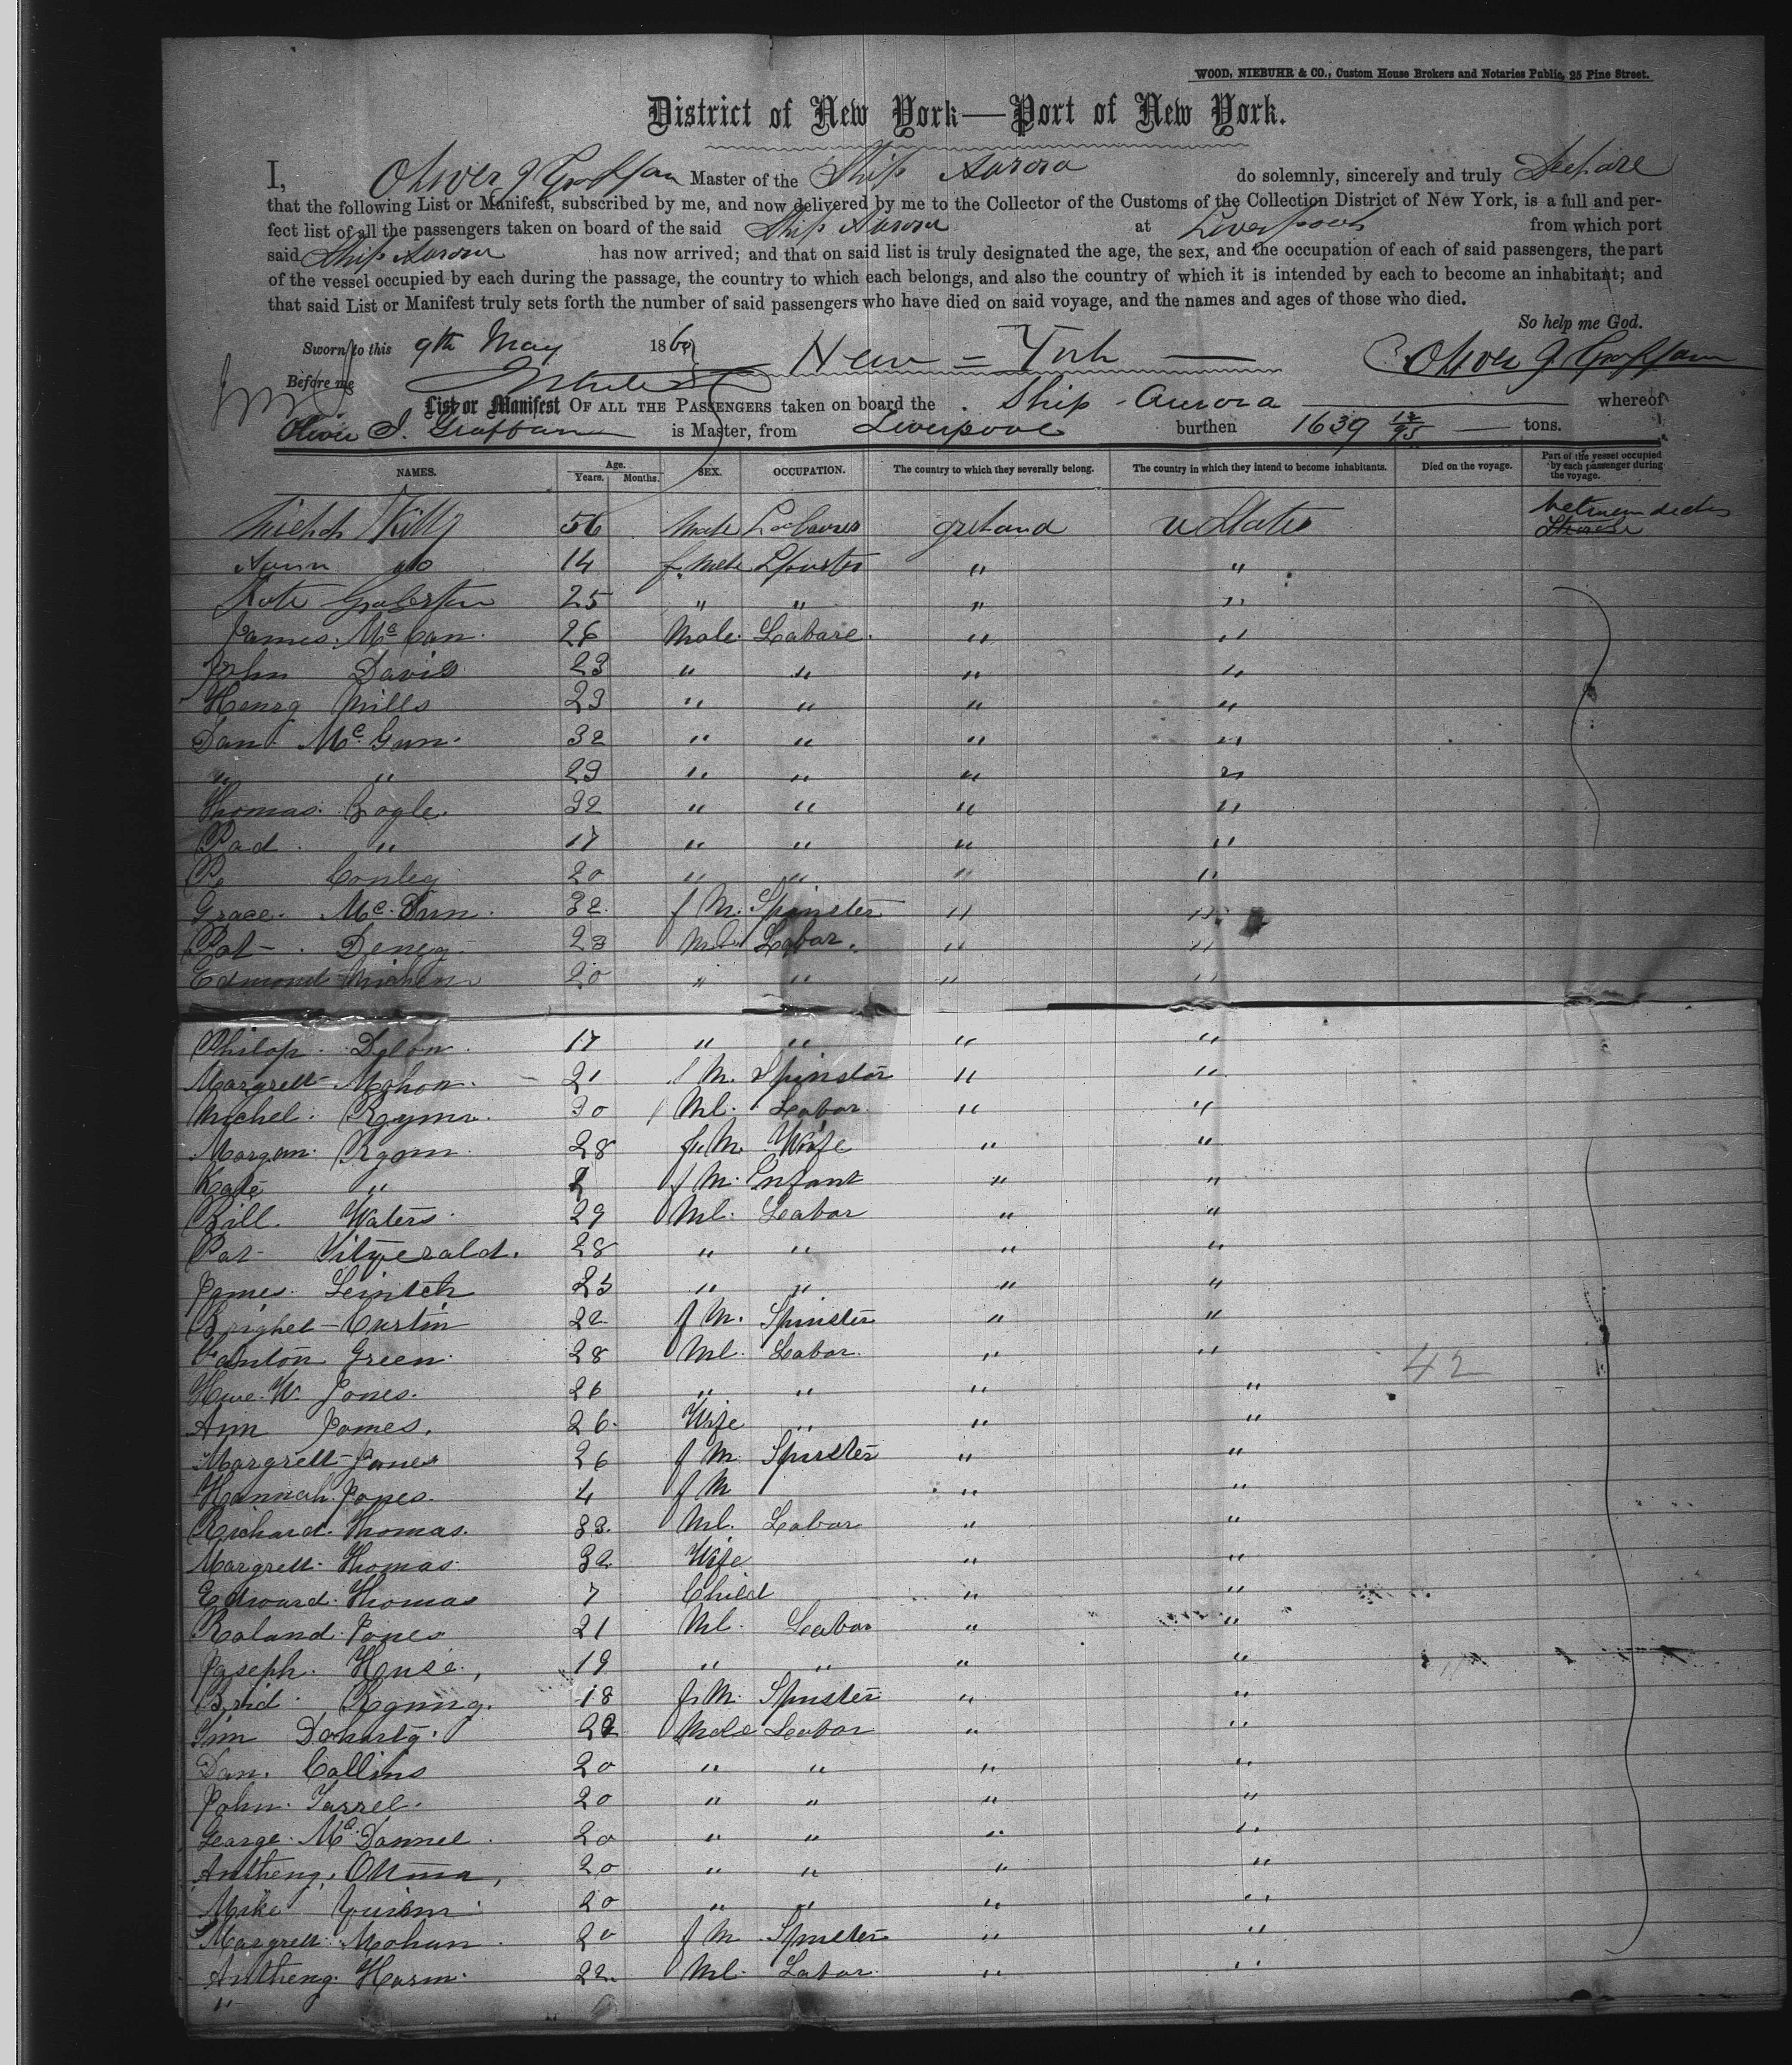 WOOD, NIEBUHR & CO., Custom House Brokers and Notaries Public, 25 Pine Street.
District of New York—Port of New York.
I, Oliver J Graffam Master of the Ship Aurora do solemnly, sincerely and truly
that the following List or Manifest, subscribed by me, and now delivered by me to the Collector of the Customs of the Collection District of New York, is a full and per-
fect list of all the passengers taken on board of the said Ship Aurora at Liverpool from which port
said Ship Aurora has now arrived; and that on said list is truly designated the age, the sex, and the occupation of each of said passengers, the part
of the vessel occupied by each during the passage, the country to which each belongs, and also the country of which it is intended by each to become an inhabitant; and
that said List or Manifest truly sets forth the number of said passengers who have died on said voyage, and the names and ages of those who died.
So help me God.
Sworn to this 9th May 186 New = York Oliver J Graffam
Before me
List or Manifest OF ALL THE PASSENGERS taken on board the Ship Aurora whereof
Oliver J. Graffam is Master, from Liverpool burthen 1639 tons.
NAMES. Age. Years. Months. SEX. OCCUPATION. The country to which they severally belong. The country in which they intend to become inhabitants. Died on the voyage. Part of the vessel occupied by each passenger during the voyage.
56 Male Labourer Ireland U States between decks
do 14 f. male
Kate 25 " " " "
James Mc Can. 26 Male. Labare. " "
John Davis 23 " " " "
Henry Mills 23 " " " "
Dan. Mc Gun. 32 " " " "
" " 29 " " " "
Thomas. Bogle. 32 " " " "
Pad. " 17 " " " "
Conley 20 " " " "
Grace. Mc. 32. f M. Spinster " "
Pat. Deney 23 Ml. Labar. " "
Edmond 20 " " " "
Philop. Dolon. 17 " " " "
Margrett Mohon. 21 f M. Spinster " "
Michel. 30 Ml. Labar. " "
Morgan. 28 f. M. Wife " "
Kate " 2 f M. Infant " "
Bill. Waters. 29 Ml. Labar " "
Pat Fitzerald. 28 " " " "
James. 25 " " " "
Brighet Curtin 22. f M. Spinster " "
Green. 28 Ml. Labar. " "
42
W. Jones. 26 " " " "
Ann James. 26. Wife " " "
Margrett Jones 26 f M. Spinster " "
Hannah. Jones. 4 f M " "
Richard. Thomas. 33. Ml. Labar " "
Margrett. Thomas. 32 Wife " "
Edward. Thomas 7 Child " "
Roland. Jones 21 Ml. Labar " "
Joseph. House., 19 " " " "
Brid. 18 f. M. Spinster " "
Doharty. 22 Male Labar " "
Dan. Collins 20 " " " "
John. Farrel. 20 " " " "
George. Mc. Donnel. 20 " " " "
Antheny, 20 " " " "
Mike 20 " " " "
Margrett. Mohun. 20 f M. Spinster " "
Antheny. Harm. 22. Ml. Labar. " "
"